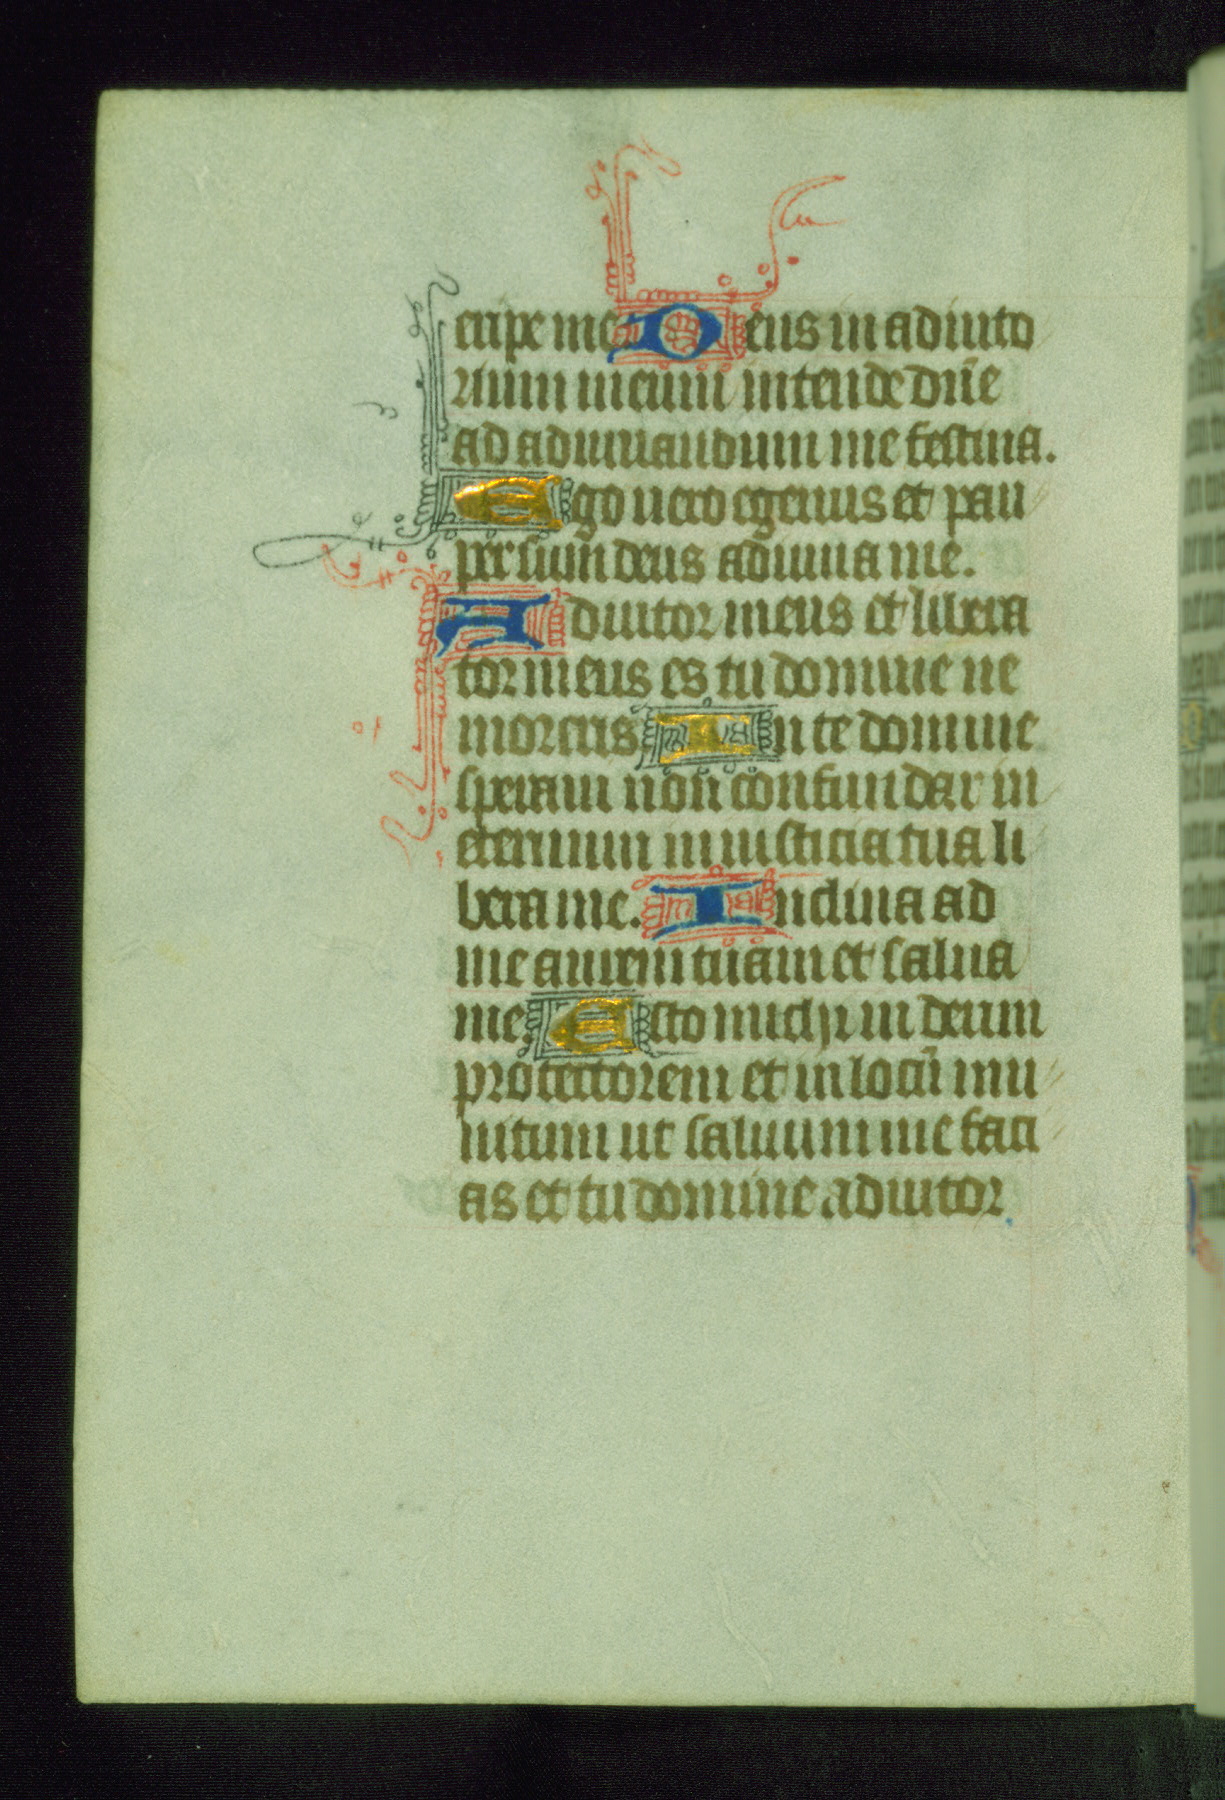 eripe me Deus in adiuto
rium meum intende dn̄e
ad adiuuandum me festina.
Ego uero egenus et pau
per sum deus adiuua me.
Adiutor meus et libera
tor meus es tu domine ne
moreris In te domine
speraui non confundar in
eternum in iusticia tua li
bera me. Inclina ad
me aurem tuam et salua
me. Esto michi in deum
protectorem et in locū mu
nitum ut saluum me faci
as et tu domine adiutor